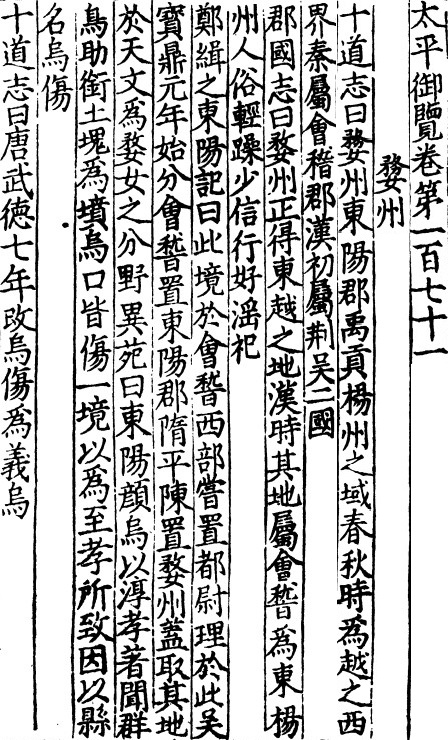 太平御覽卷第一百七十一
婺州
十道志曰婺州東陽郡禹貢楊州之域春秋時爲越之西
界秦屬會稽郡漢初屬荆吴二國
郡國志曰婺州正得東越之地漢時其地屬會暨爲東楊
州人俗輕躁少信行好滛祀
鄭緝之東陽記曰此境於會暨西部嘗置都尉理於此吴
寳鼎元年始分會暨置東陽郡隋平陳置婺州蓋取其地
於天文爲婺女之分野異苑曰東陽顔烏以淳孝著聞群
烏助銜土塊爲墳烏口皆傷一境以爲至孝所致因以縣
名烏傷
十道志曰唐武徳七年改烏傷爲義烏